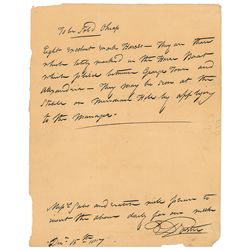 To be Sold Cheap
Eight excellent work Horses — They are those
which lately worked in the Horse Boat
which plied between George Town and
Alexandria — They may be seen at the
Stable on Merchant Hole by applying
to the Manager.
Messrs Gales and Seaton will please to
insert the above daily for one week
Decr 15th 1817